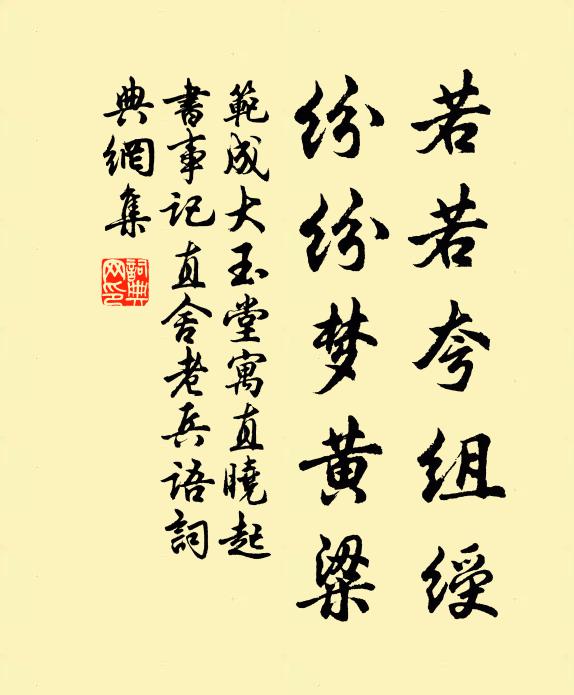 若若夸组绶
纷纷梦黄粱
範成大玉堂寓直曉起
書事记直舍老兵语詞
典網集
詞典
网印